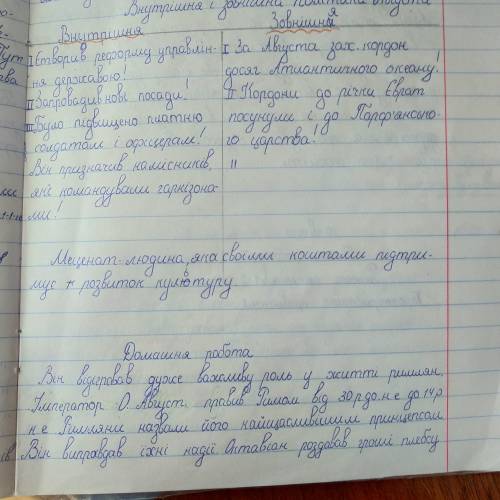 Внутрішня і зовнішня політика Августа
Внутрішня
Зовнішня
I Створив реформу управлін-
ня державою!
II Запровадив нові посади!
III Було підвищено платню
солдатам і офіцерам!
Він призначив намісників,
які командували гарнізона-
ми!
I За Августа зах. кордон
досяг Атлантичного океану!
II Кордони до річки Євфрат
посунули і до Парф'янсько-
го царства!
"
Меценат-людина, яка своїми коштами підтри-
мує розвиток культуру.
Домашня робота
Він відігравав дуже важливу роль у житті римлян.
Імператор О. Август правив Римом від 30 р до. н. е до 14 р
н. е Римляни назвали його найщасливішим принцепсом
Він виправдав їхні надії Октавіан роздавав гроші плебсу